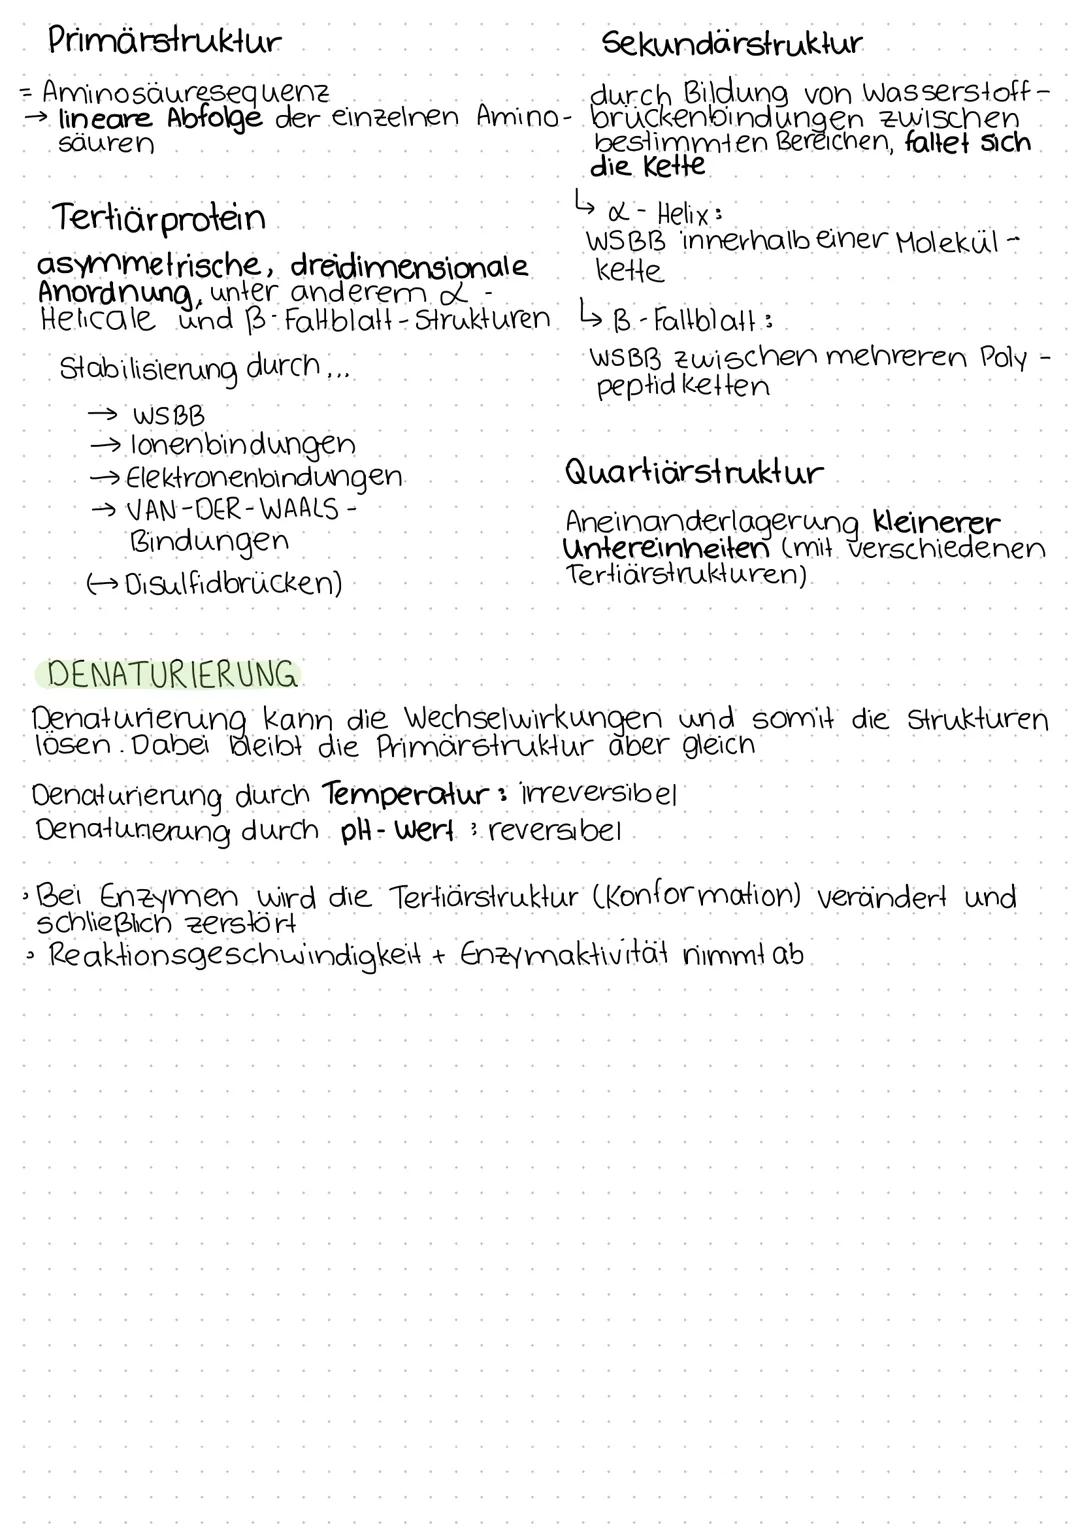 Primärstruktur
= Aminosäuresequenz
→ lineare Abfolge der einzelnen Amino-
säuren
Sekundärstruktur
durch Bildung von Wasserstoff-
brückenbindungen zwischen
bestimmten Bereichen, faltet sich
die Kette
↳ α - Helix:
WSBB innerhalb einer Molekül-
kette
↳ β - Faltblatt:
WSBB zwischen mehreren Poly-
peptidketten
Tertiärprotein
asymmetrische, dreidimensionale
Anordnung, unter anderem α -
Helicale und β-Faltblatt-Strukturen
Stabilisierung durch...
→ WSBB
→ Ionenbindungen
→ Elektronenbindungen
→ VAN-DER-WAALS-
Bindungen
(→ Disulfidbrücken)
Quartiärstruktur
Aneinanderlagerung kleinerer
Untereinheiten (mit verschiedenen
Tertiärstrukturen)
DENATURIERUNG
Denaturierung kann die Wechselwirkungen und somit die Strukturen
lösen. Dabei bleibt die Primärstruktur aber gleich
Denaturierung durch Temperatur: irreversibel
Denaturierung durch pH-Wert: reversibel
› Bei Enzymen wird die Tertiärstruktur (Konformation) verändert und
schließlich zerstört
› Reaktionsgeschwindigkeit + Enzymaktivität nimmt ab